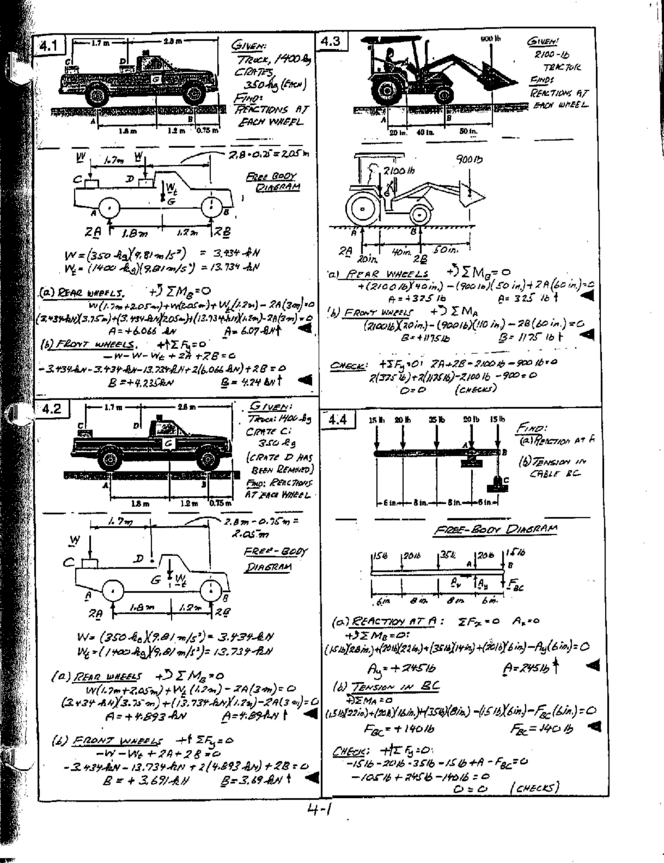 4.1
1.7 m
2.8 m
C
D
G
A
B
1.8 m
1.2 m
0.75 m
GIVEN:
TRUCK, 1400-kg
CRATES,
350-kg (EACH)
FIND:
REACTIONS AT
EACH WHEEL
W
W
1.7m
2.8-0.75=2.05m
C
D
Wt
G
FREE BODY
DIAGRAM
A
B
2A
1.8m
1.2m
2B
W = (350 kg)(9.81 m/s²) = 3.434 kN
Wt = (1400 kg)(9.81 m/s²) = 13.734 kN
(a) REAR WHEELS. +⤸ΣMB=0
W(1.7m+2.05m)+W(2.05m)+Wt(1.2m)-2A(3m)=0
(3.434kN)(3.75m)+(3.434kN)(2.05m)+(13.734kN)(1.2m)-2A(3m)=0
A=+6.066 kN A= 6.07kN↑
(b) FRONT WHEELS. +↑ΣFy=0
-W-W-Wt+2A+2B=0
-3.434kN-3.434kN-13.734kN+2(6.066 kN)+2B=0
B=+4.235kN B= 4.24 kN↑
4.2
1.7 m
2.8 m
C
D
G
A
B
1.8 m
1.2 m
0.75 m
GIVEN:
TRUCK: 1400-kg
CRATE C:
350-kg
(CRATE D HAS
BEEN REMOVED)
FIND: REACTIONS
AT EACH WHEEL
1.7m
2.8m-0.75m=
2.05m
W
C
D
G
Wt
FREE-BODY
DIAGRAM
A
B
2A
1.8m
1.2m
2B
W= (350 kg)(9.81 m/s²)= 3.434 kN
Wt=(1400 kg)(9.81 m/s²)= 13.734 kN
(a) REAR WHEELS +⤸ΣMB=0
W(1.7m+2.05m)+Wt(1.2m)-2A(3m)=0
(3.434 kN)(3.75m)+(13.734kN)(1.2m)-2A(3m)=0
A=+4.893 kN A=4.89kN↑
(b) FRONT WHEELS +↑ΣFy=0
-W-Wt+2A+2B=0
-3.434kN-13.734kN+2(4.893 kN)+2B=0
B = + 3.691 kN B=3.69 kN↑
4.3
900 lb
G
A
B
20 in.
40 in.
50 in.
GIVEN:
2100-lb
TRACTOR
FIND:
REACTIONS AT
EACH WHEEL
2100 lb
900 lb
A
B
2A
20in.
40in.
2B
50in.
(a) REAR WHEELS +⤸ΣMB=0
+(2100 lb)(40in)-(900lb)(50in)+2A(60in)=0
A=+325 lb A= 325 lb↑
(b) FRONT WHEELS +⤸ΣMA
(2100lb)(20in)-(900lb)(110in)-2B(60in.)=0
B=+1175lb B= 1175 lb↑
CHECK: +↑ΣFy=0: 2A+2B-2100lb-900lb=0
2(325 lb)+2(1175lb)-2100lb-900=0
0=0 (CHECKS)
4.4
15 lb
20 lb
35 lb
20 lb
15 lb
A
B
C
6 in.
8 in.
8 in.
6 in.
FIND:
(a) REACTION AT A
(b) TENSION IN
CABLE BC.
FREE-BODY DIAGRAM
15lb
20lb
35lb
20lb
15lb
A
B
Ay
FBC
6in
8in.
8in
6in.
(a) REACTION AT A: ΣFx=0 Ax=0
+⤸ΣMB=0:
(15lb)(28in)+(20lb)(22in)+(35lb)(14in)+(20lb)(6in)-Ay(6in)=0
Ay=+245lb A=245lb↑
(b) TENSION IN BC
+⤸ΣMA=0
(15lb)(22in)+(20lb)(16in)+(35lb)(8in)-(15lb)(6in)-FBC(6in.)=0
FBC=+140lb FBC=140 lb
CHECK: +↑ΣFy=0:
-15lb-20lb-35lb-15lb+A-FBC=0
-105lb+245lb-140lb=0
0=0 (CHECKS)
4-1